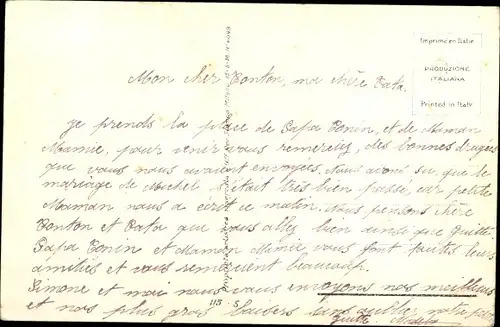 Imprimé en Italie
PRODUZIONE
ITALIANA
Printed in Italy
Mon cher Tonton, ma chère Tata.
Je prends la place de Papa Tonin, et de Maman
Mamie, pour venir vous remercier, des bonnes dragées
que vous nous avaient envoyées. Nous avons su que le
mariage de Michel s'était très bien passé, car petite
Maman nous a écrit ce matin. Nous pensons chère
Tonton et Tata que vous allez bien ainsi que
Papa Tonin et Maman Mimie vous font toutes leurs
amitiés et vous remercient beaucoup.
Simone et moi nous vous envoyons nos meilleurs
et nos plus gros baisers sans oublier notre
113 - S